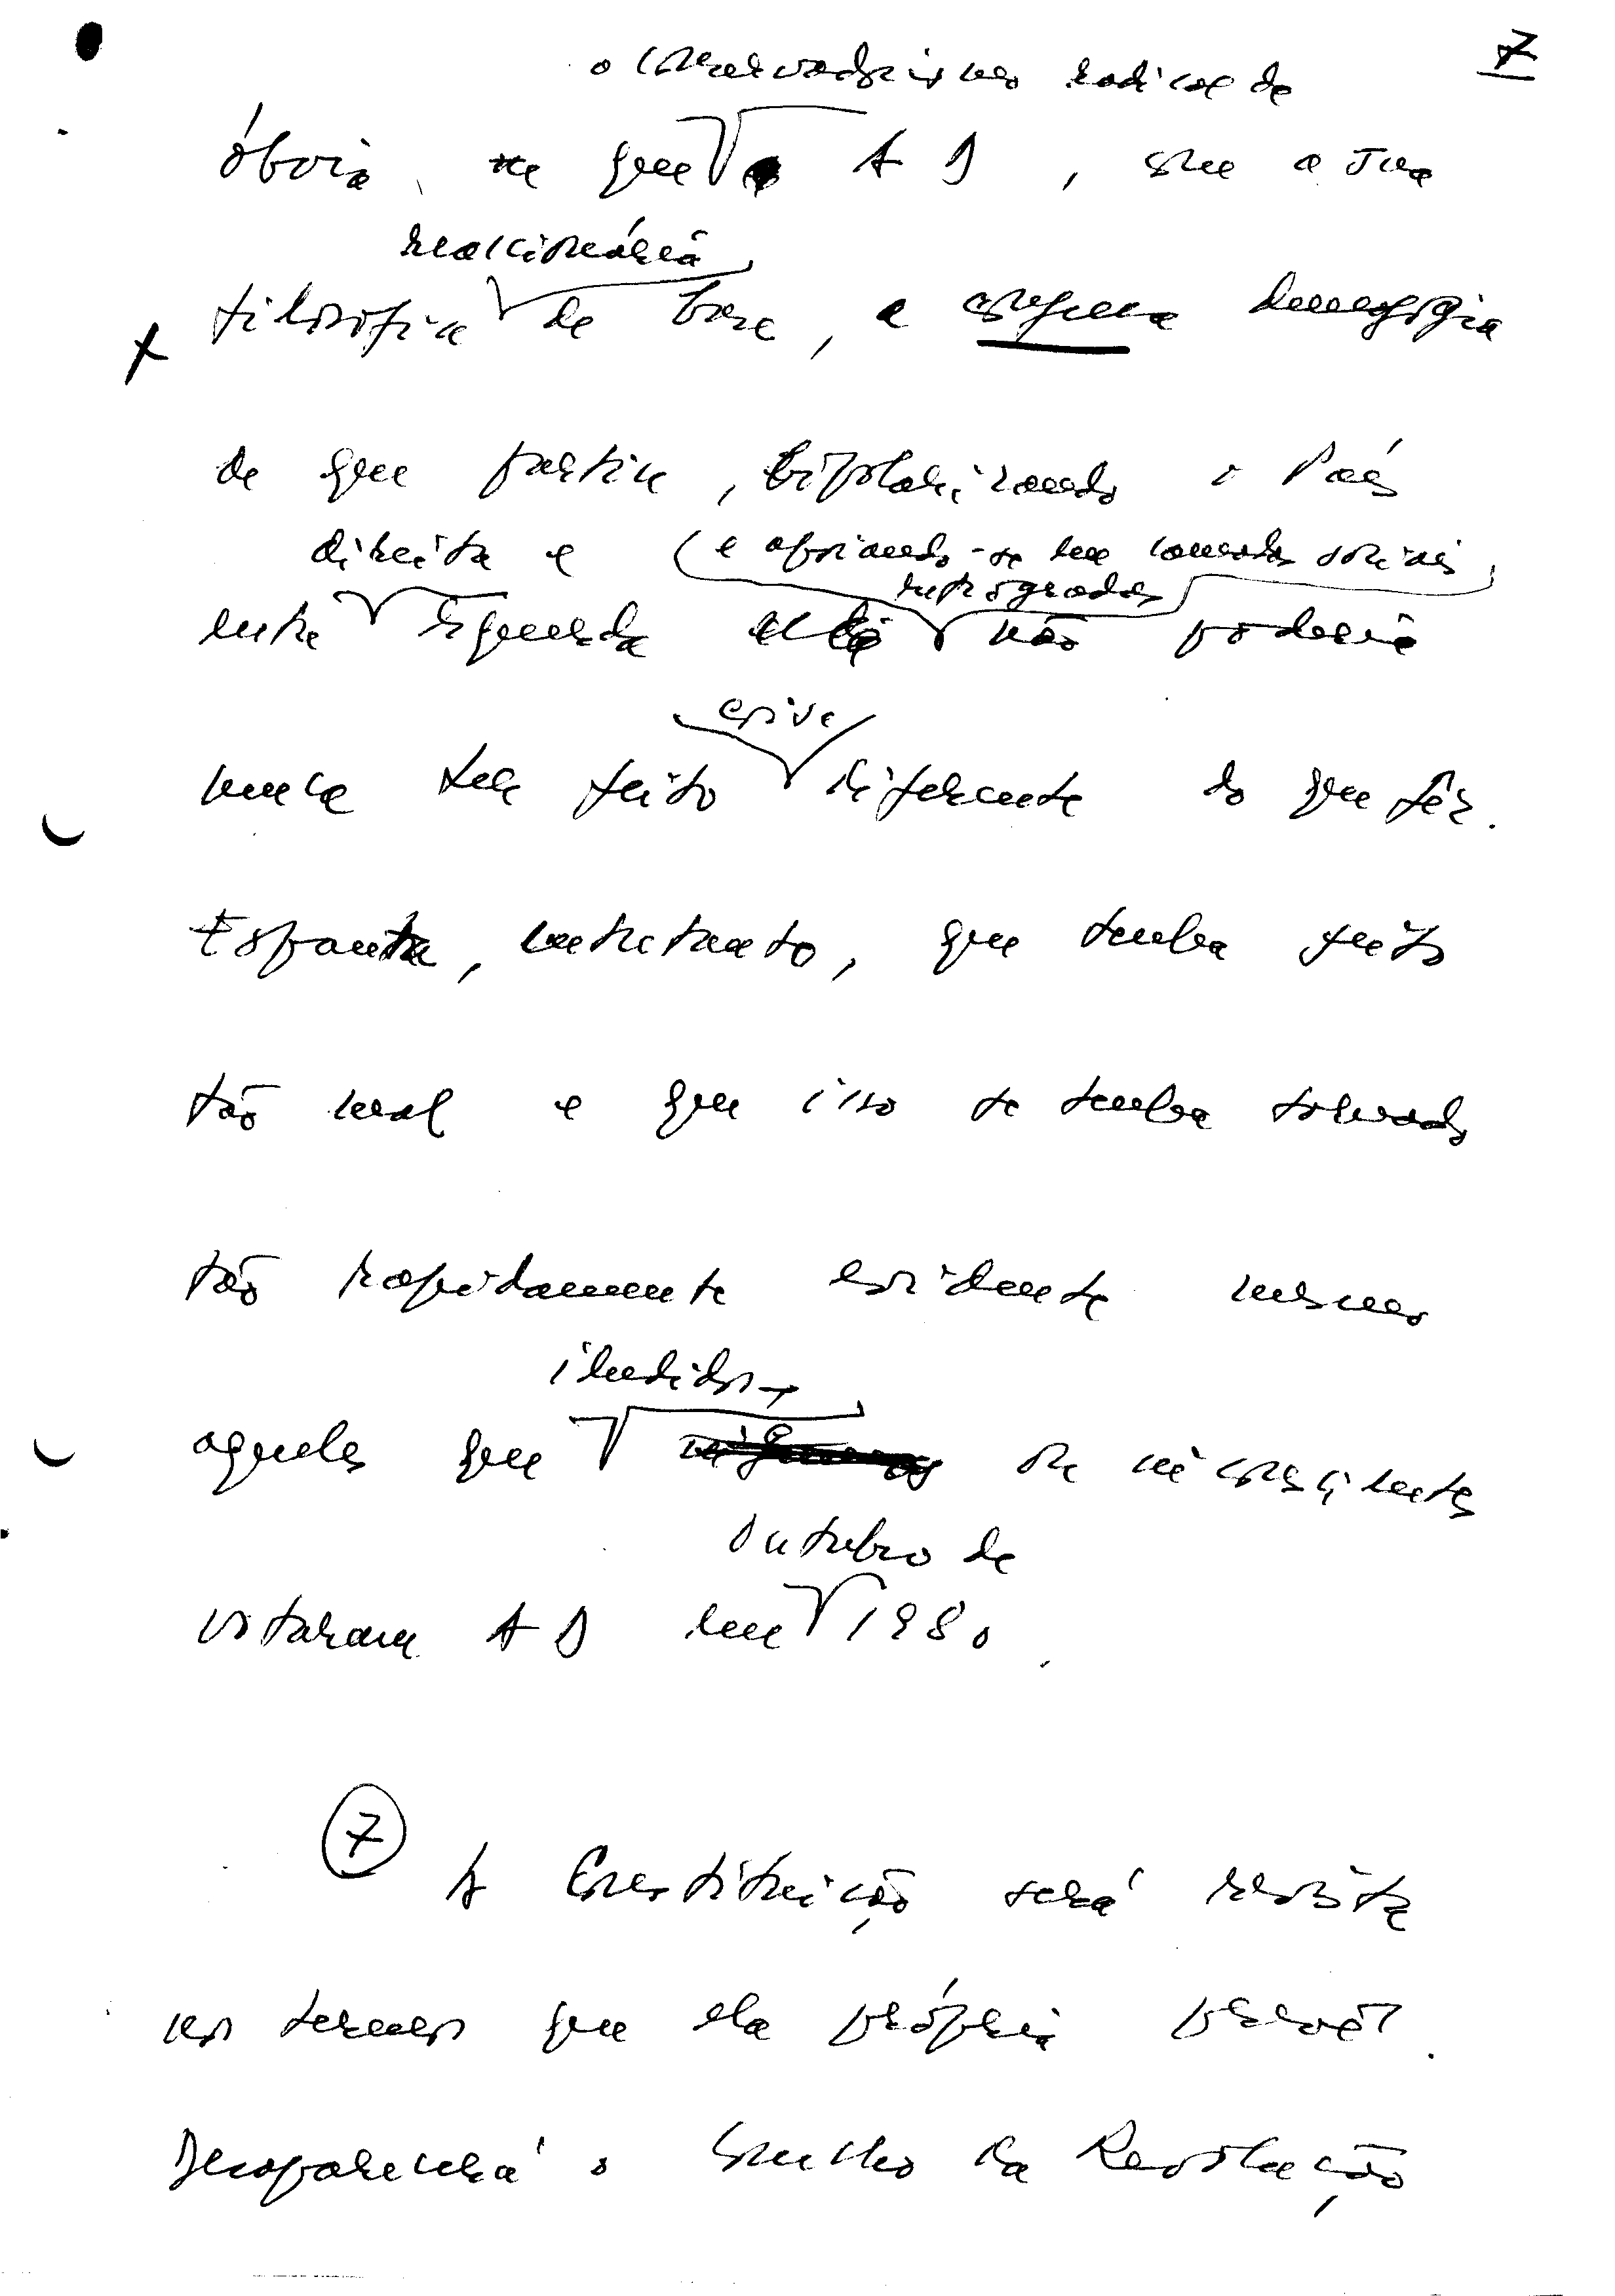 7
o conservadorismo radical da
óbvio, e que AD, com a sua
reaccionária
filosofia de base, a demagogia
de que partiu, bipolarizando o País
direita e (e apoiando-se em camadas sociais
retrogradas
entre esquerda não poderia
nunca ter feito diferente do que fêz.
Espanta, entretanto, que tenha feito
tão mal e que isso se tenha tornado
tão rapidamente evidente mesmo
iludidos
aqueles que ou inconscientes
Outubro de
votaram AD em 1980.
7
A Constituição será revista
nos termos que ela própria prevê.
Desaparecerá o Conselho da Revolução